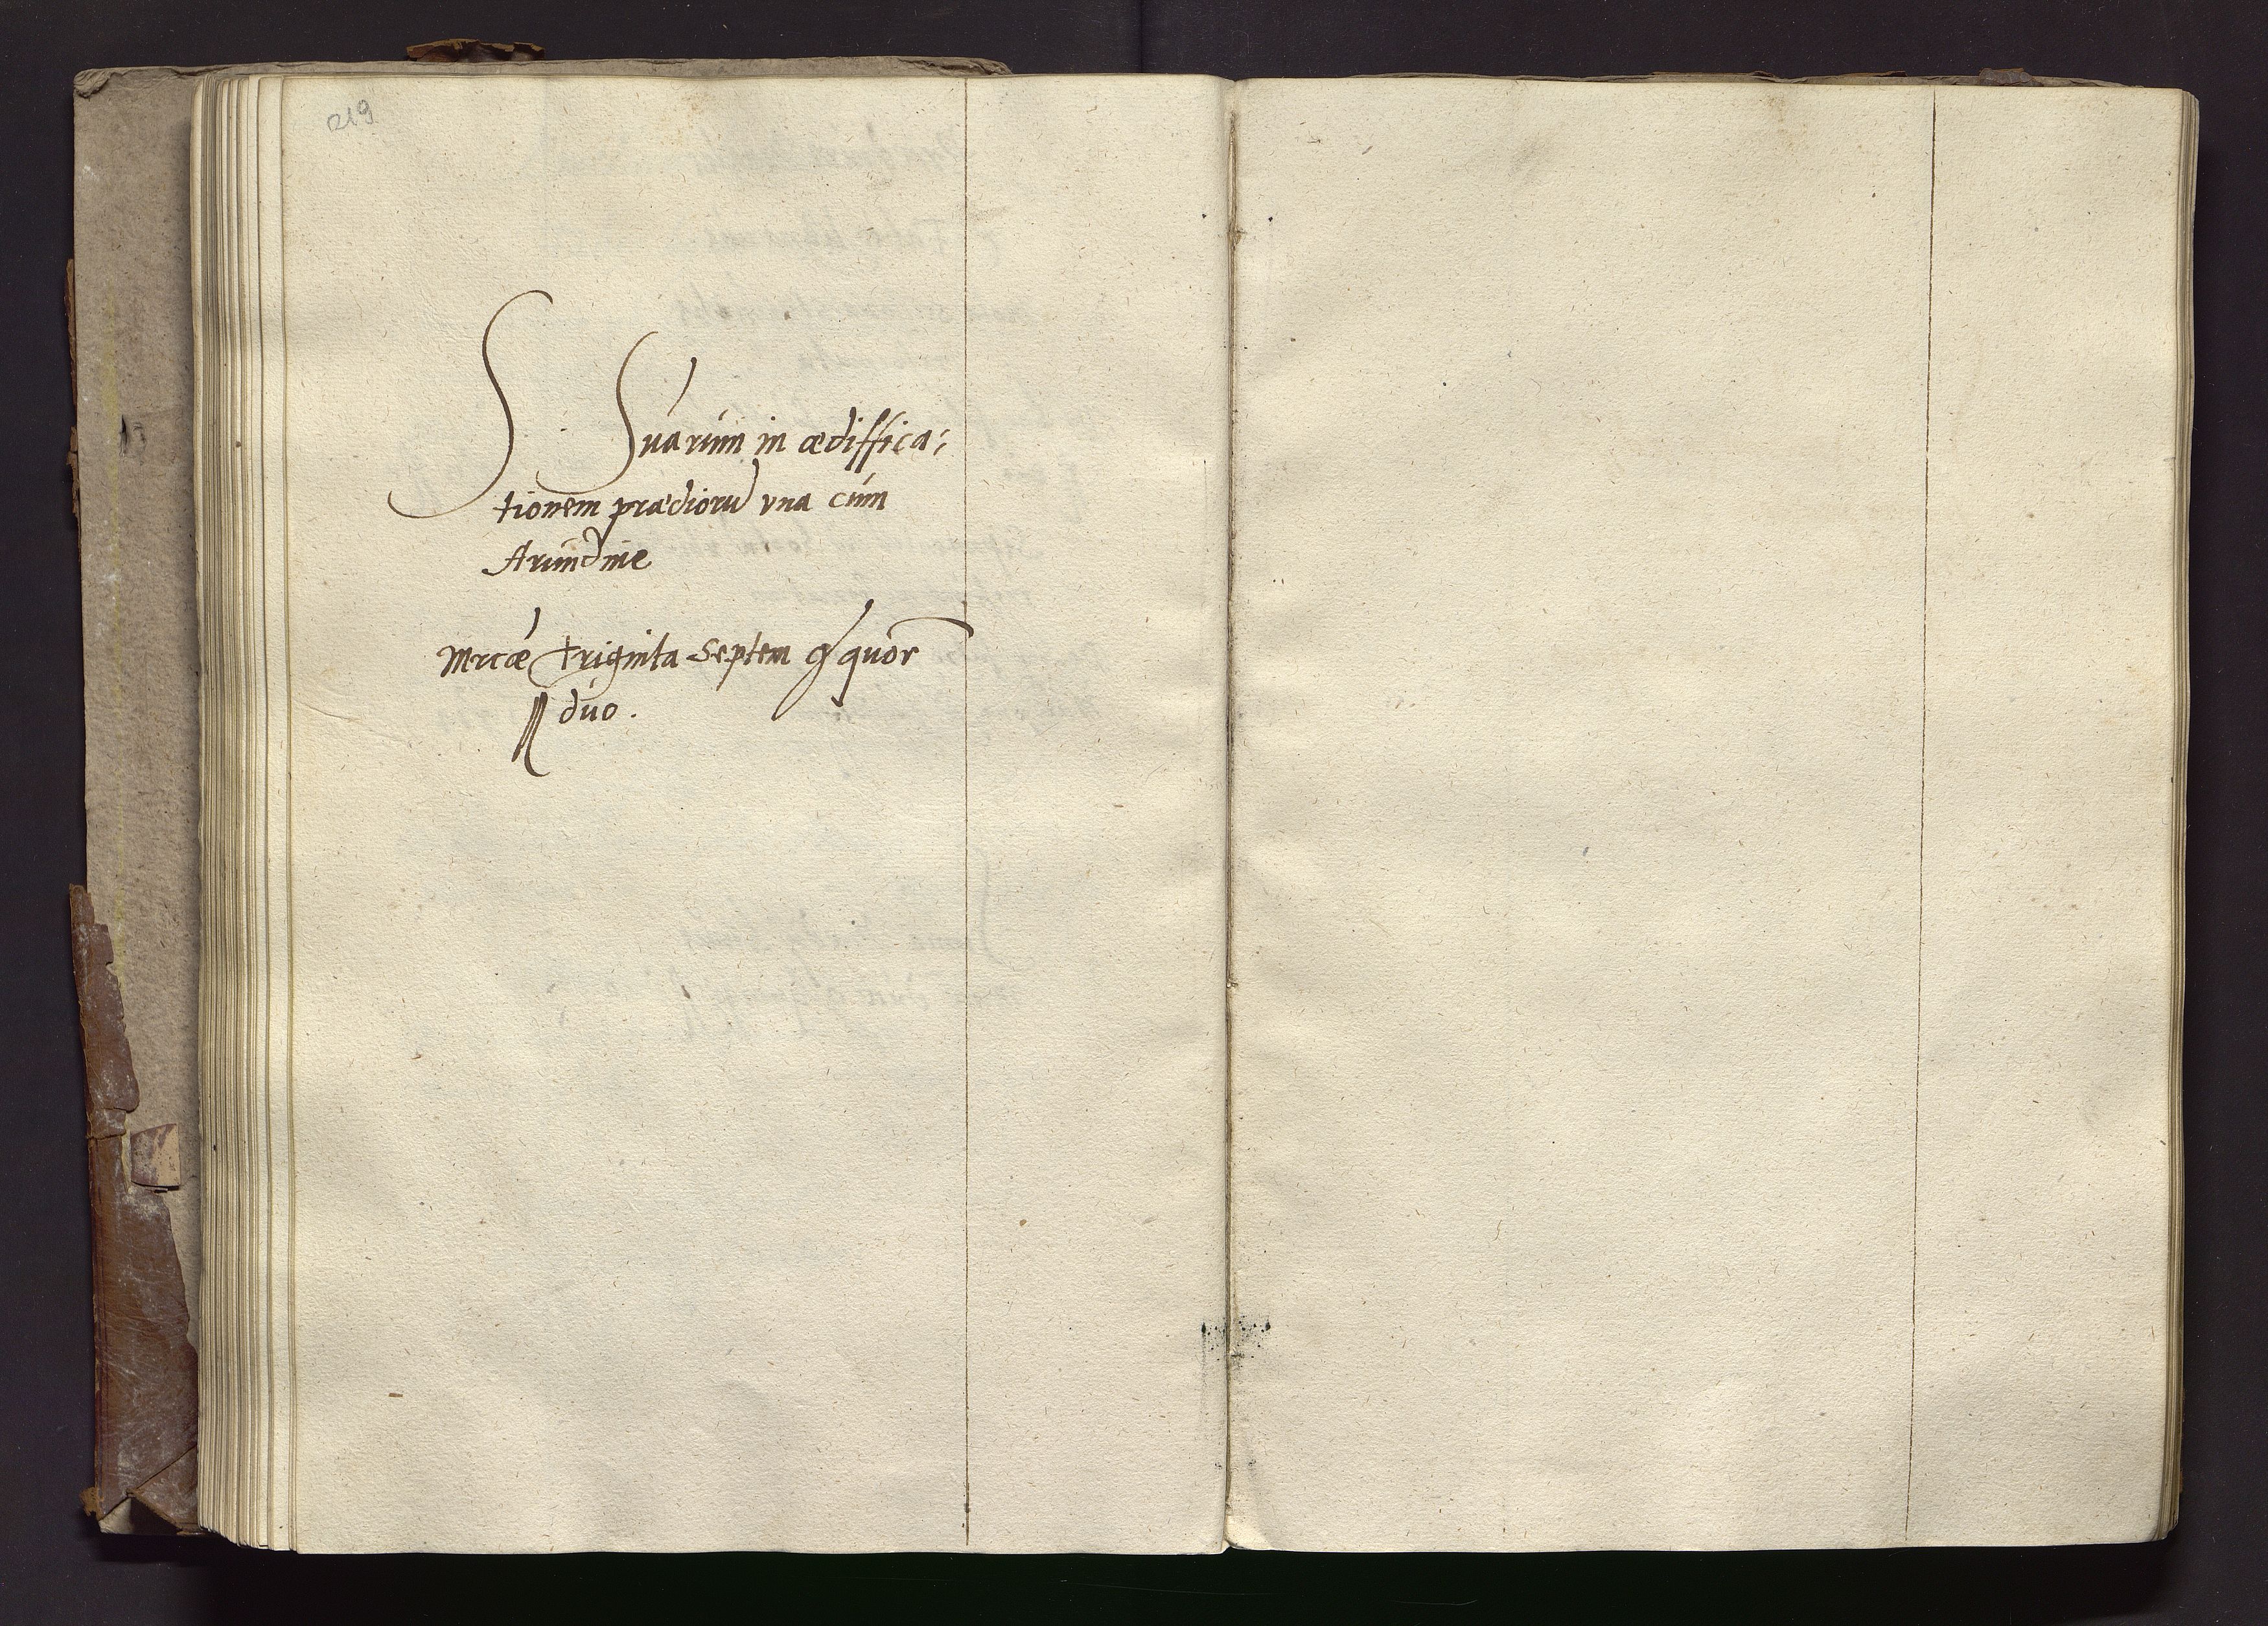 219
S Suarum in ædiffica:
tionem prædiorũ vna cum
Arundine
Mrcæ triginta septem g quor
ʒ duo.